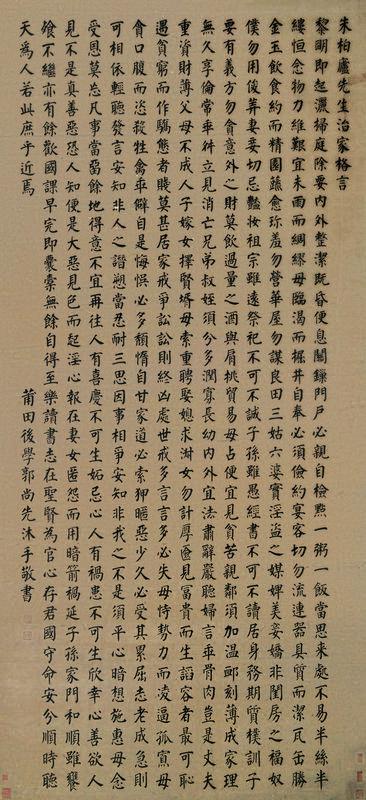 朱柏廬先生治家格言
黎明即起灑掃庭除要內外整潔既昏便息關鎖門戶必親自檢點一粥一飯當思來處不易半絲半
縷恒念物力維艱宜未雨而綢繆毋臨渴而掘井自奉必須儉約宴客切勿流連器具質而潔瓦缶勝
金玉飲食約而精園蔬愈珍羞勿營華屋勿謀良田三姑六婆實淫盜之媒婢美妾嬌非閨房之福奴
僕勿用俊美妻妾切忌豔妝祖宗雖遠祭祀不可不誠子孫雖愚經書不可不讀居身務期質樸訓子
要有義方勿貪意外之財莫飲過量之酒與肩挑貿易毋占便宜見貧苦親鄰須加溫卹刻薄成家理
無久享倫常乖舛立見消亡兄弟叔姪須分多潤寡長幼內外宜法肅辭嚴聽婦言乖骨肉豈是丈夫
重資財薄父母不成人子嫁女擇賢婿毋索重聘娶媳求淑女勿計厚奩見富貴而生諂容者最可恥
遇貧窮而作驕態者賤莫甚居家戒爭訟訟則終凶處世戒多言言多必失毋恃勢力而凌逼孤寡毋
貪口腹而恣殺牲禽乖僻自是悔悞必多頹惰自甘家道必索狎暱惡少久必受其累屈志老成急則
可相依輕聽發言安知非人之譖愬當忍耐三思因事相爭安知非我之不是須平心暗想施惠毋念
受恩莫忘凡事當留餘地得意不宜再往人有喜慶不可生妬忌心人有禍患不可生欣幸心善欲人
見不是真善惡恐人知便是大惡見色而起淫心報在妻女匿怨而用暗箭禍延子孫家門和順雖饔
飧不繼亦有餘歡國課早完即囊橐無餘自得至樂讀書志在聖賢為官心存君國守命安分順時聽
天為人若此庶乎近焉
莆田後學郭尚先沐手敬書